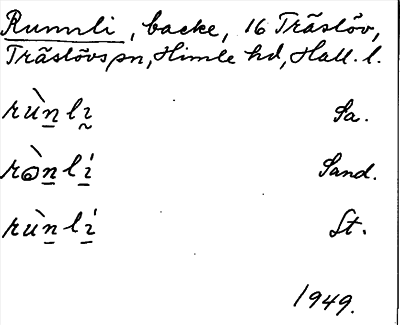 Runnli, backe, 16 Träslöv,
Träslövs sn, Himle hd, Hall. l.
rùn̲ lı̰ Sa.
rɷ̀n̲ lí̲ Sand.
rùn̲ lí̲ St.
1949.